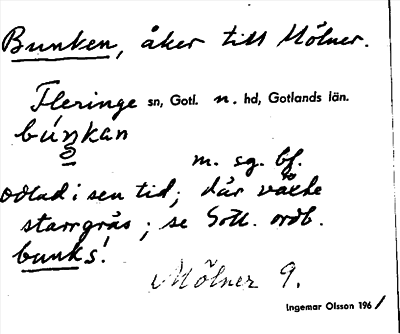 Bunken, åker till Mölner.
Fleringe sn, Gotl. n. hd, Gotlands län.
búŋkan
m. sg. bf.
odlad i sen tid; där växte
starrgräs; se Gotl. ordb.
bunks!
Mölner 9.
Ingemar Olsson 1961